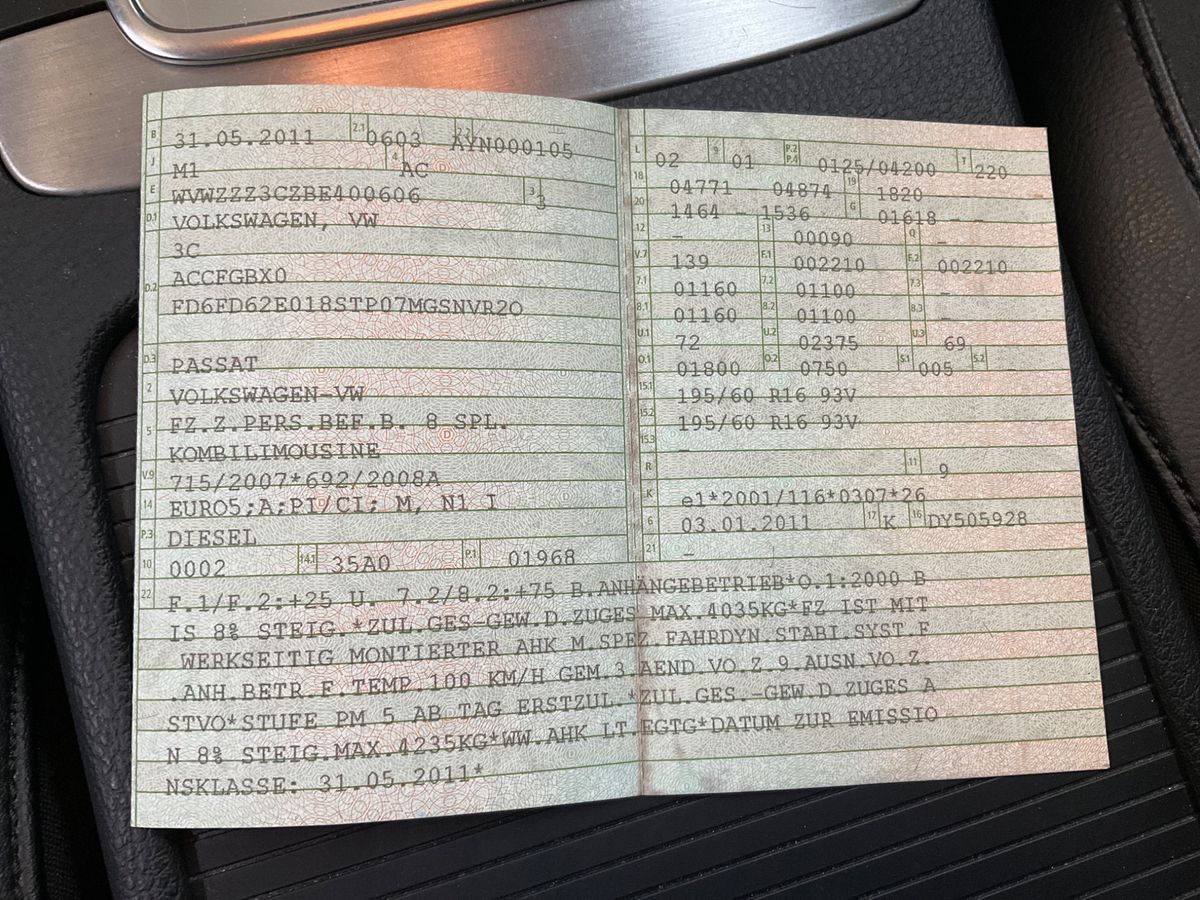 B 31.05.2011 2.1 0603 2.2 AYN000105
J M1 4 AC
E WVWZZZ3CZBE400606 3 3
D.1 VOLKSWAGEN, VW
3C
D.2 ACCFGBX0
FD6FD62E018STP07MGSNVR2O
D.3 PASSAT
2 VOLKSWAGEN-VW
5 FZ.Z.PERS.BEF.B. 8 SPL.
KOMBILIMOUSINE
V.9 715/2007*692/2008A
14 EURO5;A;PI/CI; M, N1 I
P.3 DIESEL
10 0002 14.1 35A0 P.1 01968
L 02 9 01 P.2 P.4 0125/04200 T 220
18 04771 - 04874 19 1820
20 1464 - 1536 G 01618 - -
12 - 13 00090 Q -
V.7 139 F.1 002210 F.2 002210
7.1 01160 7.2 01100 7.3 -
8.1 01160 8.2 01100 8.3 -
U.1 72 U.2 02375 U.3 69
O.1 01800 O.2 0750 S.1 005 S.2 -
15.1 195/60 R16 93V
15.2 195/60 R16 93V
15.3 -
R 11 9
K e1*2001/116*0307*26
6 03.01.2011 17 K 16 DY505928
21 -
22 F.1/F.2:+25 U. 7.2/8.2:+75 B.ANHÄNGEBETRIEB*O.1:2000 B
IS 8% STEIG.*ZUL.GES-GEW.D.ZUGES MAX.4035KG*FZ IST MIT
WERKSEITIG MONTIERTER AHK M.SPEZ.FAHRDYN.STABI.SYST.F
.ANH.BETR.F.TEMP.100 KM/H GEM.3.AEND.VO.Z.9.AUSN.VO.Z.
STVO*STUFE PM 5 AB TAG ERSTZUL.*ZUL.GES.-GEW.D.ZUGES A
N 8% STEIG.MAX.4235KG*WW.AHK LT.EGTG*DATUM ZUR EMISSIO
NSKLASSE: 31.05.2011*